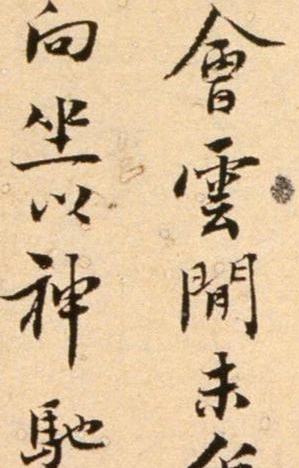 會雲間未
向坐以神馳